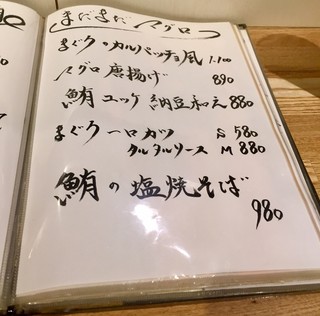 まだまだマグロっ
まぐろのカルパッチョ風 1.100
マグロ唐揚げ 890
鮪ユッケ納豆和え 880
まぐろ一口カツ S 580
タルタルソース M 880
鮪の塩焼そば
980